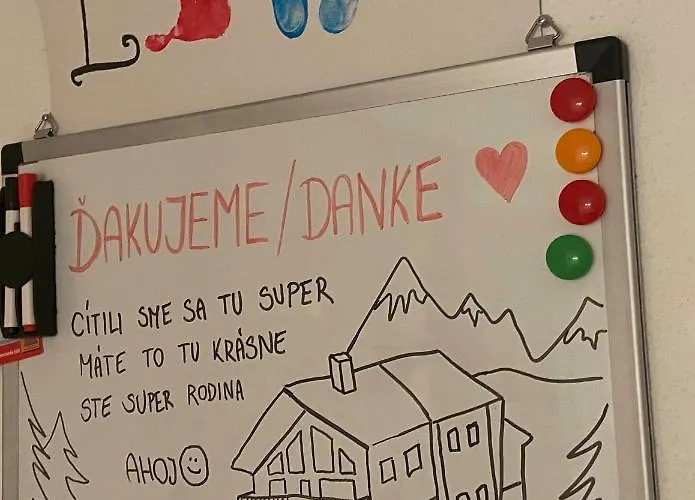 ĎAKUJEME/DANKE
CÍTILI SME SA TU SUPER
MÁTE TO TU KRÁSNE
STE SUPER RODINA
AHOJ